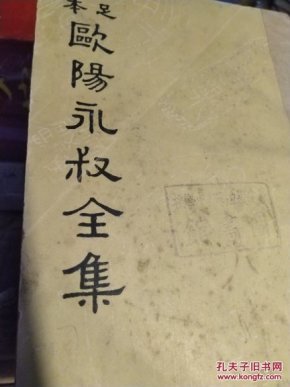 足本
歐陽永叔全集
孔夫子旧书网
www.kongfz.com